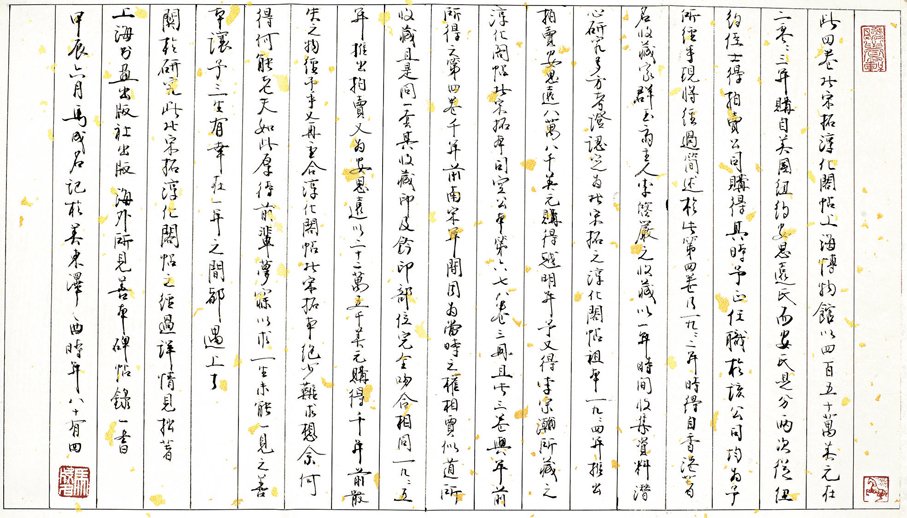 此四卷北宋拓淳化閣帖上海博物館以四百五十萬美元在
二零零三年購自美國紐約安思遠氏而安氏是分兩次從紐
約佳士得拍賣公司購得其時予正任職於該公司均為予
所經手現將經過簡述於此第四卷乃一九八二年時得自香港著
名收藏家群玉齋主人李啓嚴之收藏以一年時間收集資料潛
心研究多方考證認定為北宋拓之淳化閣帖祖本一九八四年推出
拍賣安思遠八萬八千美元購得越明年予又得李宗瀚所藏之
淳化閣帖北宋拓本司空公本第六七八卷三冊且此三卷與年前
所得之第四卷千年前南宋年間因為當時之權相賈似道所
收藏且是同一套其收藏印及鈐印部位完全吻合相同一九八五
年推出拍賣又為安思遠以二十二萬五千美元購得千年前散
失之物經予手又再重合淳化閣帖北宋拓本絕少難求想余何
得何能老天如此厚待前輩夢寐以求一生未能一見之善
本讓予三生有幸在一年之間都遇上了
關於研究此北宋拓淳化閣帖之經過詳情見拙著
上海書畫出版社出版 海外所見善本碑帖錄一書
甲辰六月馬成名記於美東澤西時年八十有四